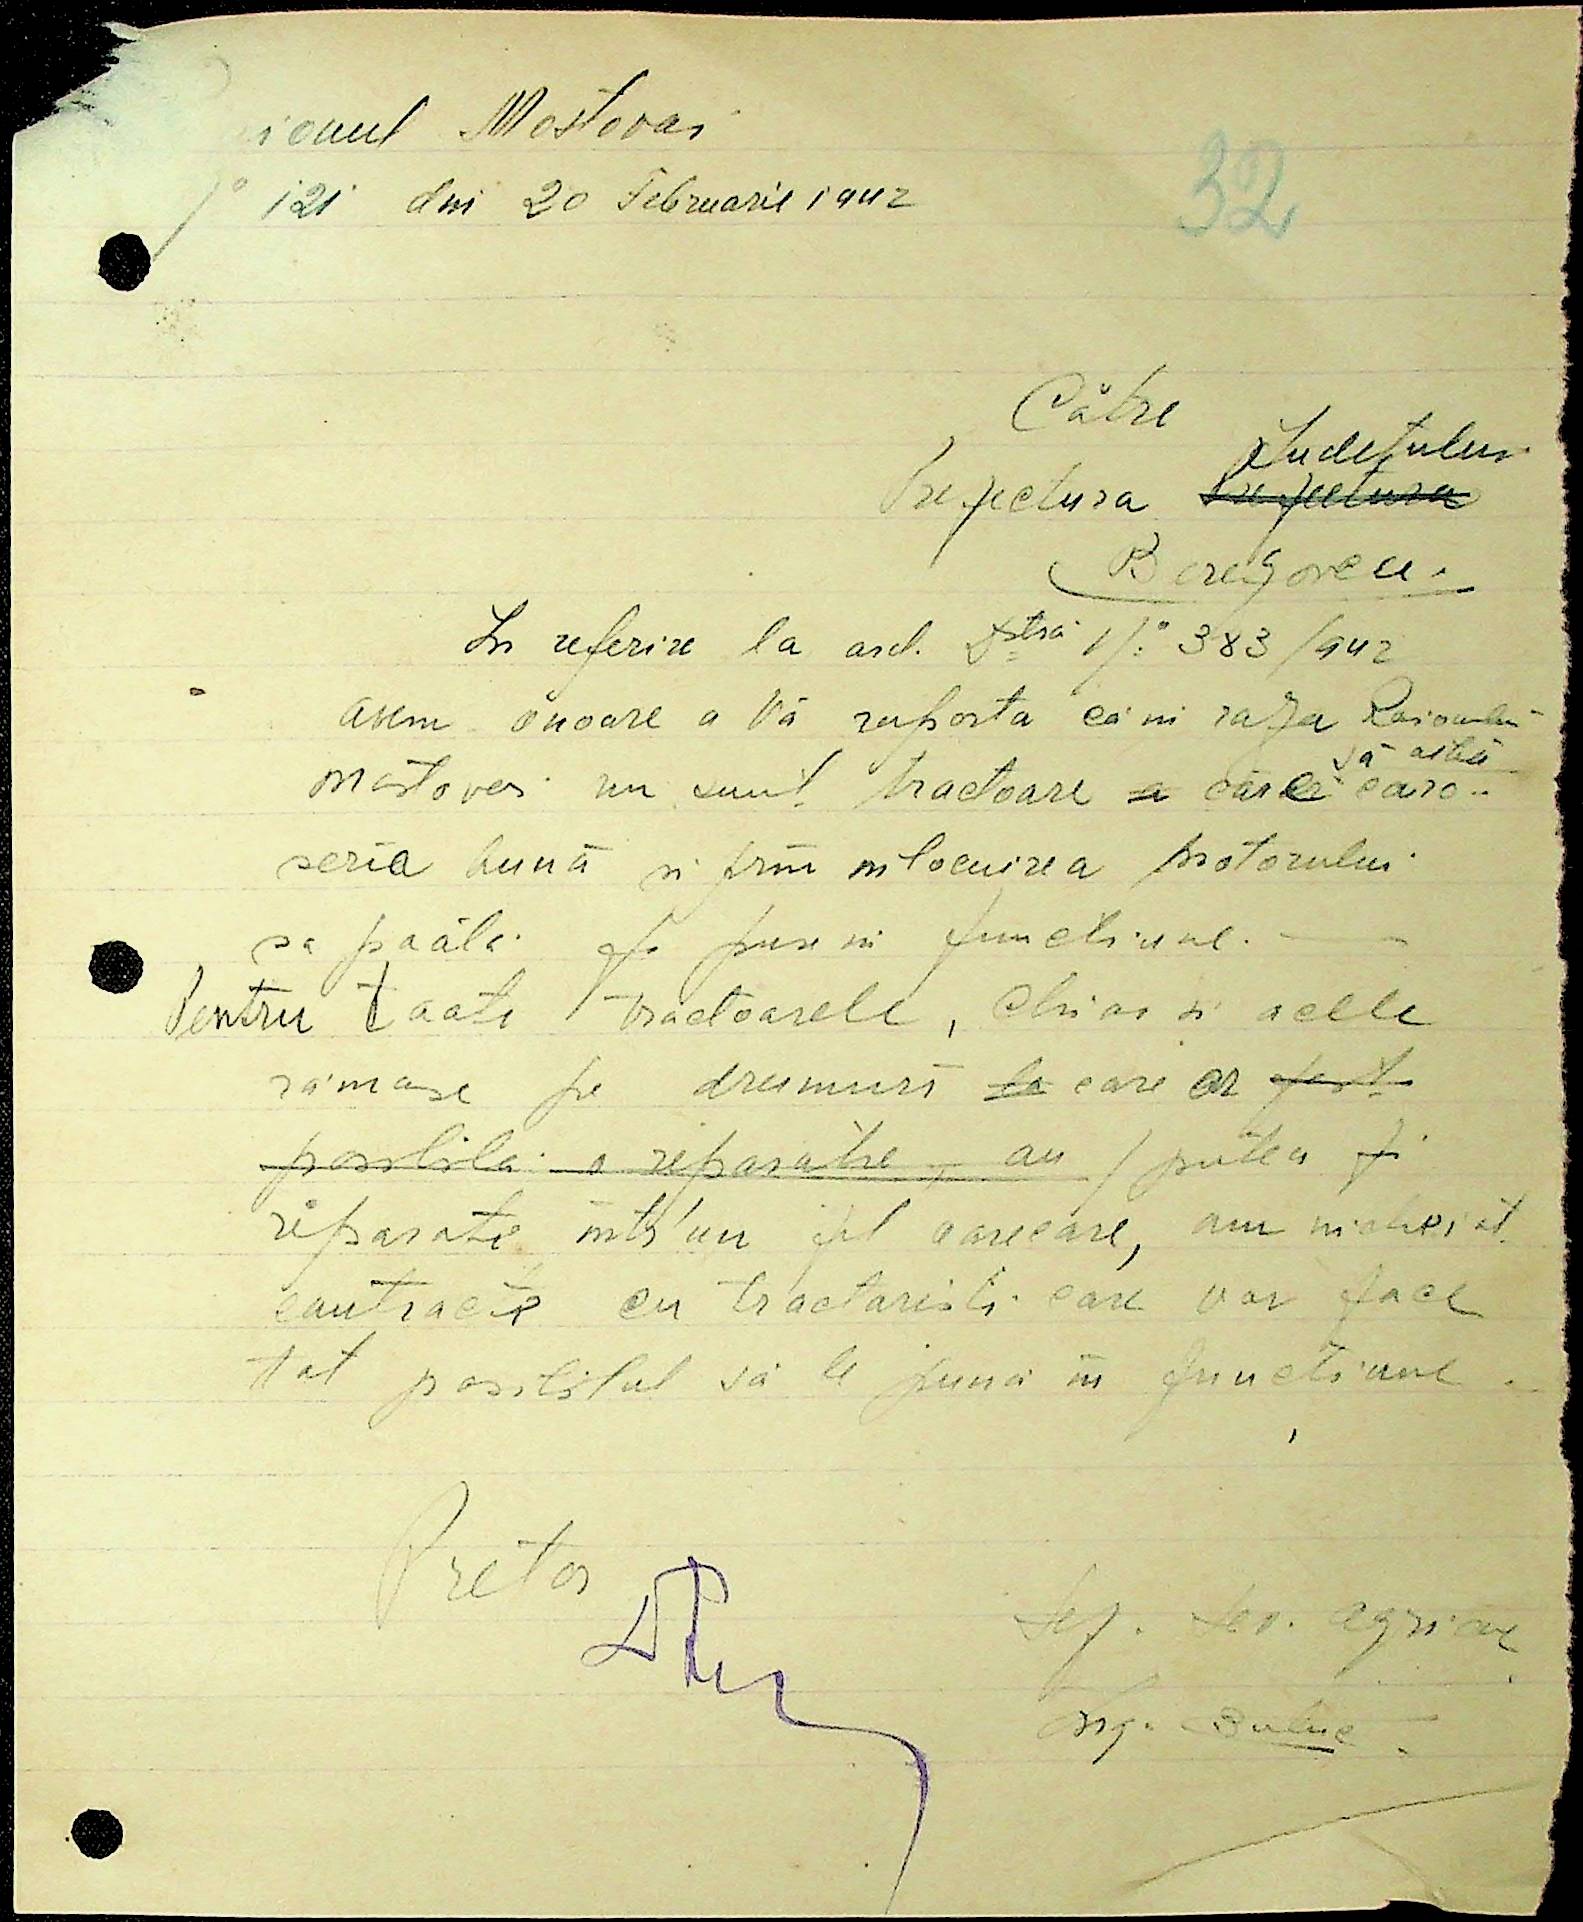 ionul Mostovoi
No 121 din 20 Februarie 1942
32
Către
Judeţului
Prefectura Prefectura
Berezovca.
In referire la ord. Dstră No 383/942
avem onoare a Vă raporta că in raza Raionului
Mostovoi nu sunt tractoare a căror să aibă caro-
seria bună si prin inlocuirea motorului
sa poată fi puse in functiune. —
Pentru toate tractoarele, chiar si acele
rămase pe drumuri la care ar fost
posibila o reparatie, au putea fi
reparate intr'un fel oarecare, am incheiat
contracte cu tractoristi care vor face
tot posibilul să le pună in functiune.
Pretor
Sef. Serv. agricol
Ing.